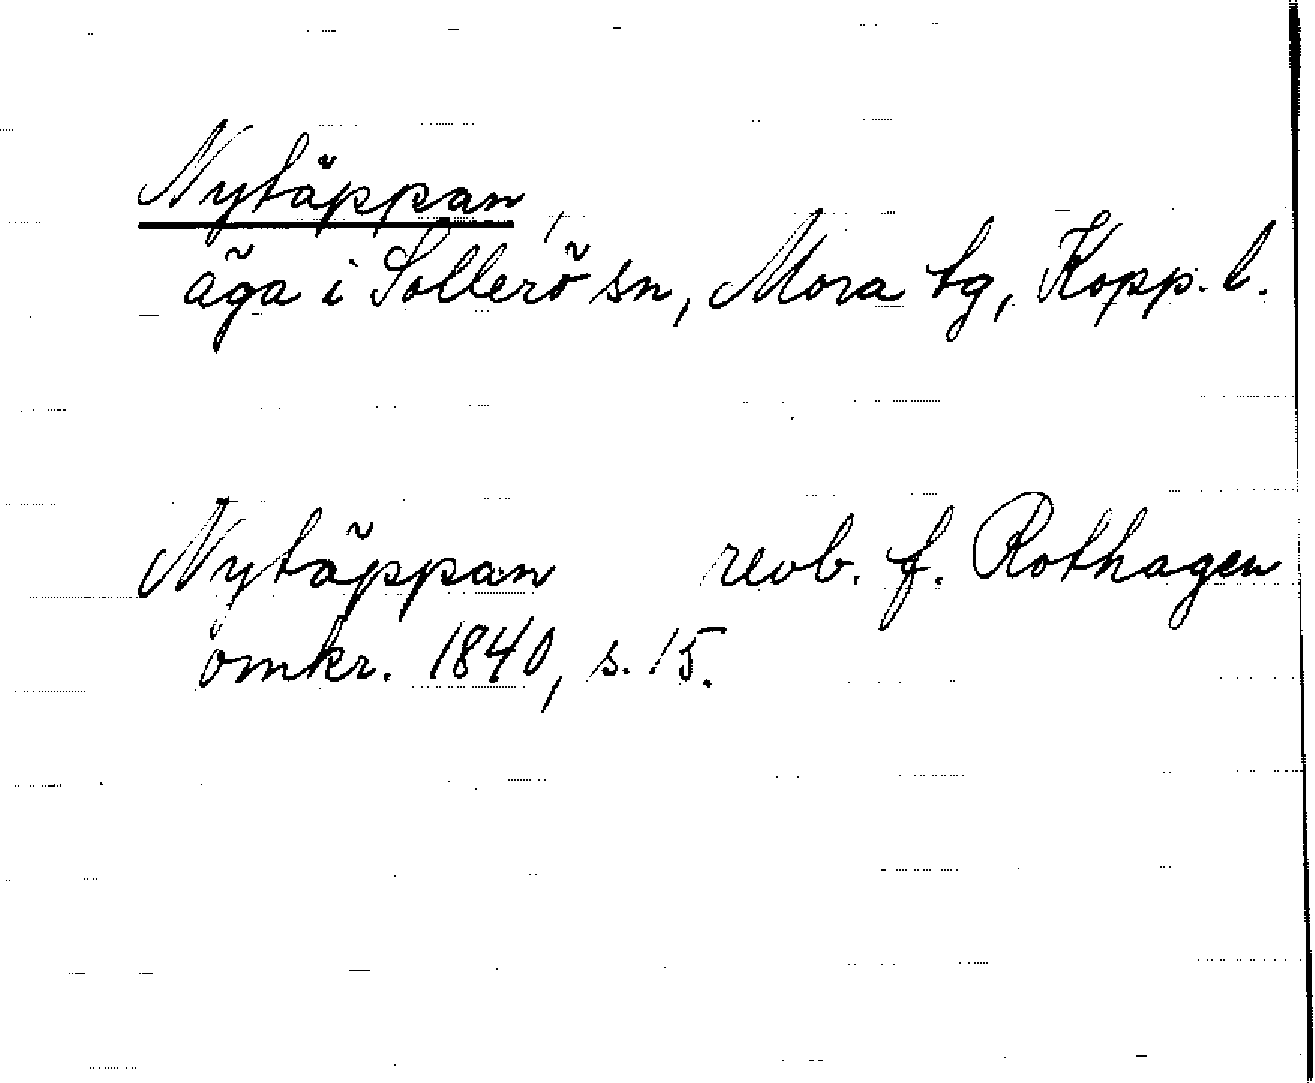 Nytäppan,
äga i Sollerö sn, Mora tg, Kopp. l.
Nytäppan revb. f. Rothagen
omkr. 1840, s. 15.